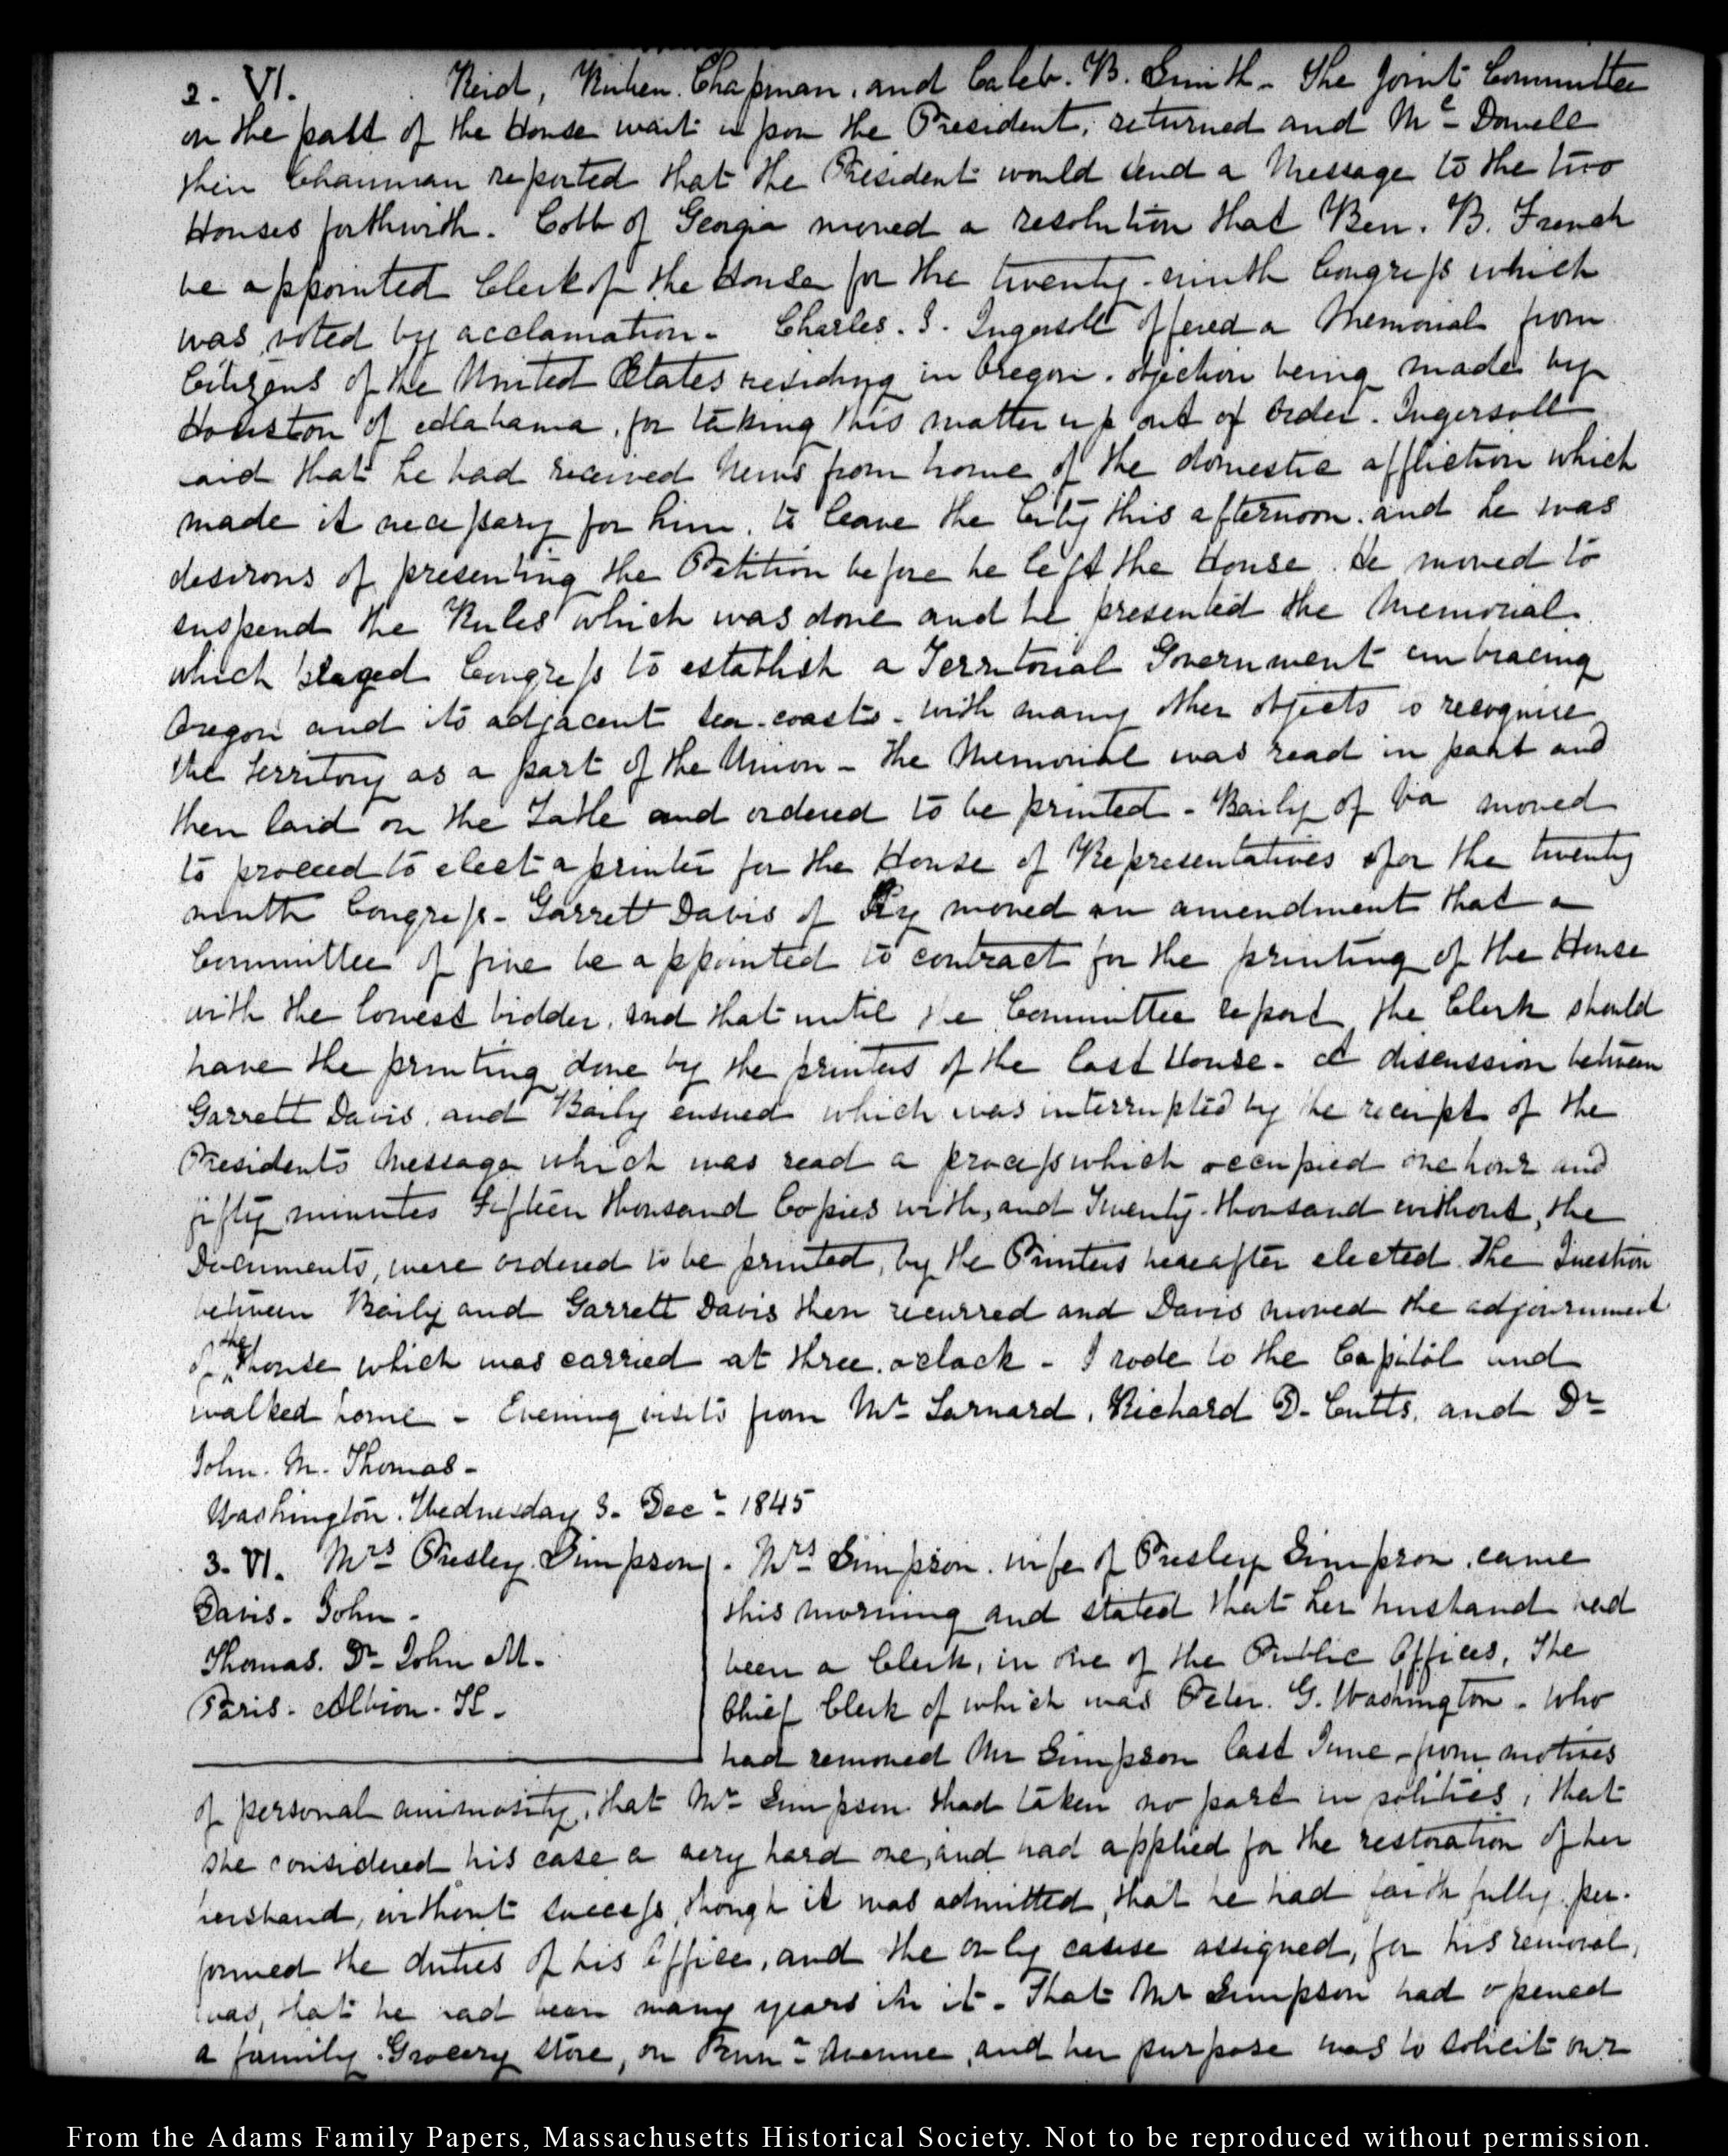 2. VI. Reid, Reuben. Chapman, and Caleb. B. Smith - The joint Committee
on the part of the House wait upon the President, returned and Mc Dowell
their Chairman reported that the President would send a Message to the two
Houses forthwith. Cobb of Georgia moved a resolution that Ben. B. French
be appointed Clerk of the House for the twenty-ninth Congress which
was voted by acclamation - Charles. J. Ingersoll offered a Memorial from
Citizens of the United States residing in Oregon. objection being made by
Houston of Alabama, for taking this matter up out of order. Ingersoll
said that he had received news from home of the domestic affliction which
made it necessary for him, to leave the City this afternoon. and he was
desirous of presenting the Petition before he left the House. He moved to
suspend the Rules which was done and he presented the Memorial
which Congress to establish a Territorial Government embracing
Oregon and its adjacent sea-coasts - with many other objects to recognise
the territory as a part of the Union - The Memorial was read in part and
then laid on the Table and ordered to be printed - Baily of Va moved
to proceed to elect a printer for the House of Representatives for the twenty
ninth Congress - Garrett Davis of Ky moved an amendment that a
Committee of five be appointed to contract for the printing of the House
with the lowest bidder, and that until the Committee report, the Clerk should
have the printing done by the printers of the last House - A discussion between
Garrett Davis, and Baily ensued which was interrupted by the receipt of the
Presidents Message which was read a process which occupied one hour and
fifty minutes Fifteen thousand Copies with, and Twenty-thousand without, the
Documents, were ordered to be printed, by the Printers hereafter elected. The Question
between Baily and Garrett Davis then recurred and Davis moved the adjournment
of the house which was carried at three, oclock - I rode to the Capitol and
walked home - Evening visits from Mr Richard D. Cutts, and Dr
John. M. Thomas -
Washington. Wednesday 3. Decr. 1845
3. VI. Mrs Presley Simpson
Davis - John -
Thomas. Dr John M.
Paris - Albion - K.
Mrs Simpson, wife of Presley Simpson, came
this morning and stated that her husband had
been a Clerk, in one of the Public Offices, The
Chief Clerk of which was Peter. G. Washington - who
had removed Mr Simpson last June, from motives
of personal animosity, that Mr Simpson had taken no part in politics, that
she considered his case a very hard one, and had applied for the restoration of her
husband, without success, though it was admitted, that he had faithfully per-
formed the duties of his Office, and the only cause assigned, for his removal,
was, that he had been many years in it - That Mr Simpson had opened
a family Grocery store, on Penna Avenue, and her purpose was to solicit our
From the Adams Family Papers, Massachusetts Historical Society. Not to be reproduced without permission.